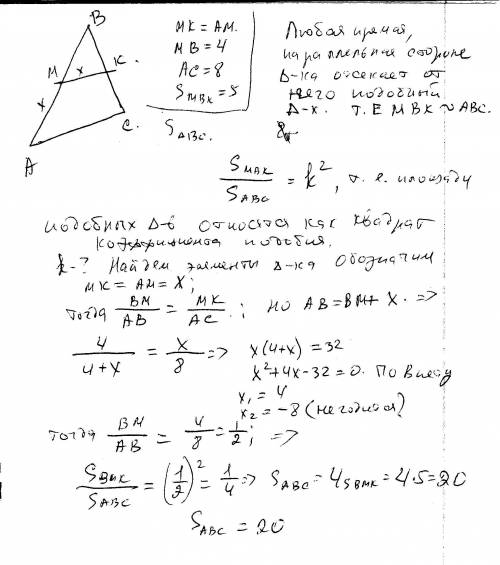 B
M
x
K
x
C
A
MK = AM.
MB = 4
AC = 8
S MBK = 5
S ABC.
Любая прямая,
параллельная стороне
Δ-ка отсекает от
него подобный
Δ-к. Т.Е MBK ∾ ABC.
S MBK / S ABC = k², т. е. площади
подобных Δ-в относятся как квадрат
коэффициента подобия.
k-? Найдем элементы Δ-ка обозначим
MK = AM = X;
тогда BM/AB = MK/AC; но AB = BM + X. =>
4/(4+x) = x/8 => x(4+x) = 32
x²+4x-32=0. По Виету
x₁ = 4
x₂ = -8 (не годится)
тогда BM/AB = 4/8 = 1/2; =>
S BMK / S ABC = (1/2)² = 1/4 => S ABC = 4 S BMK = 4·5 = 20
S ABC = 20